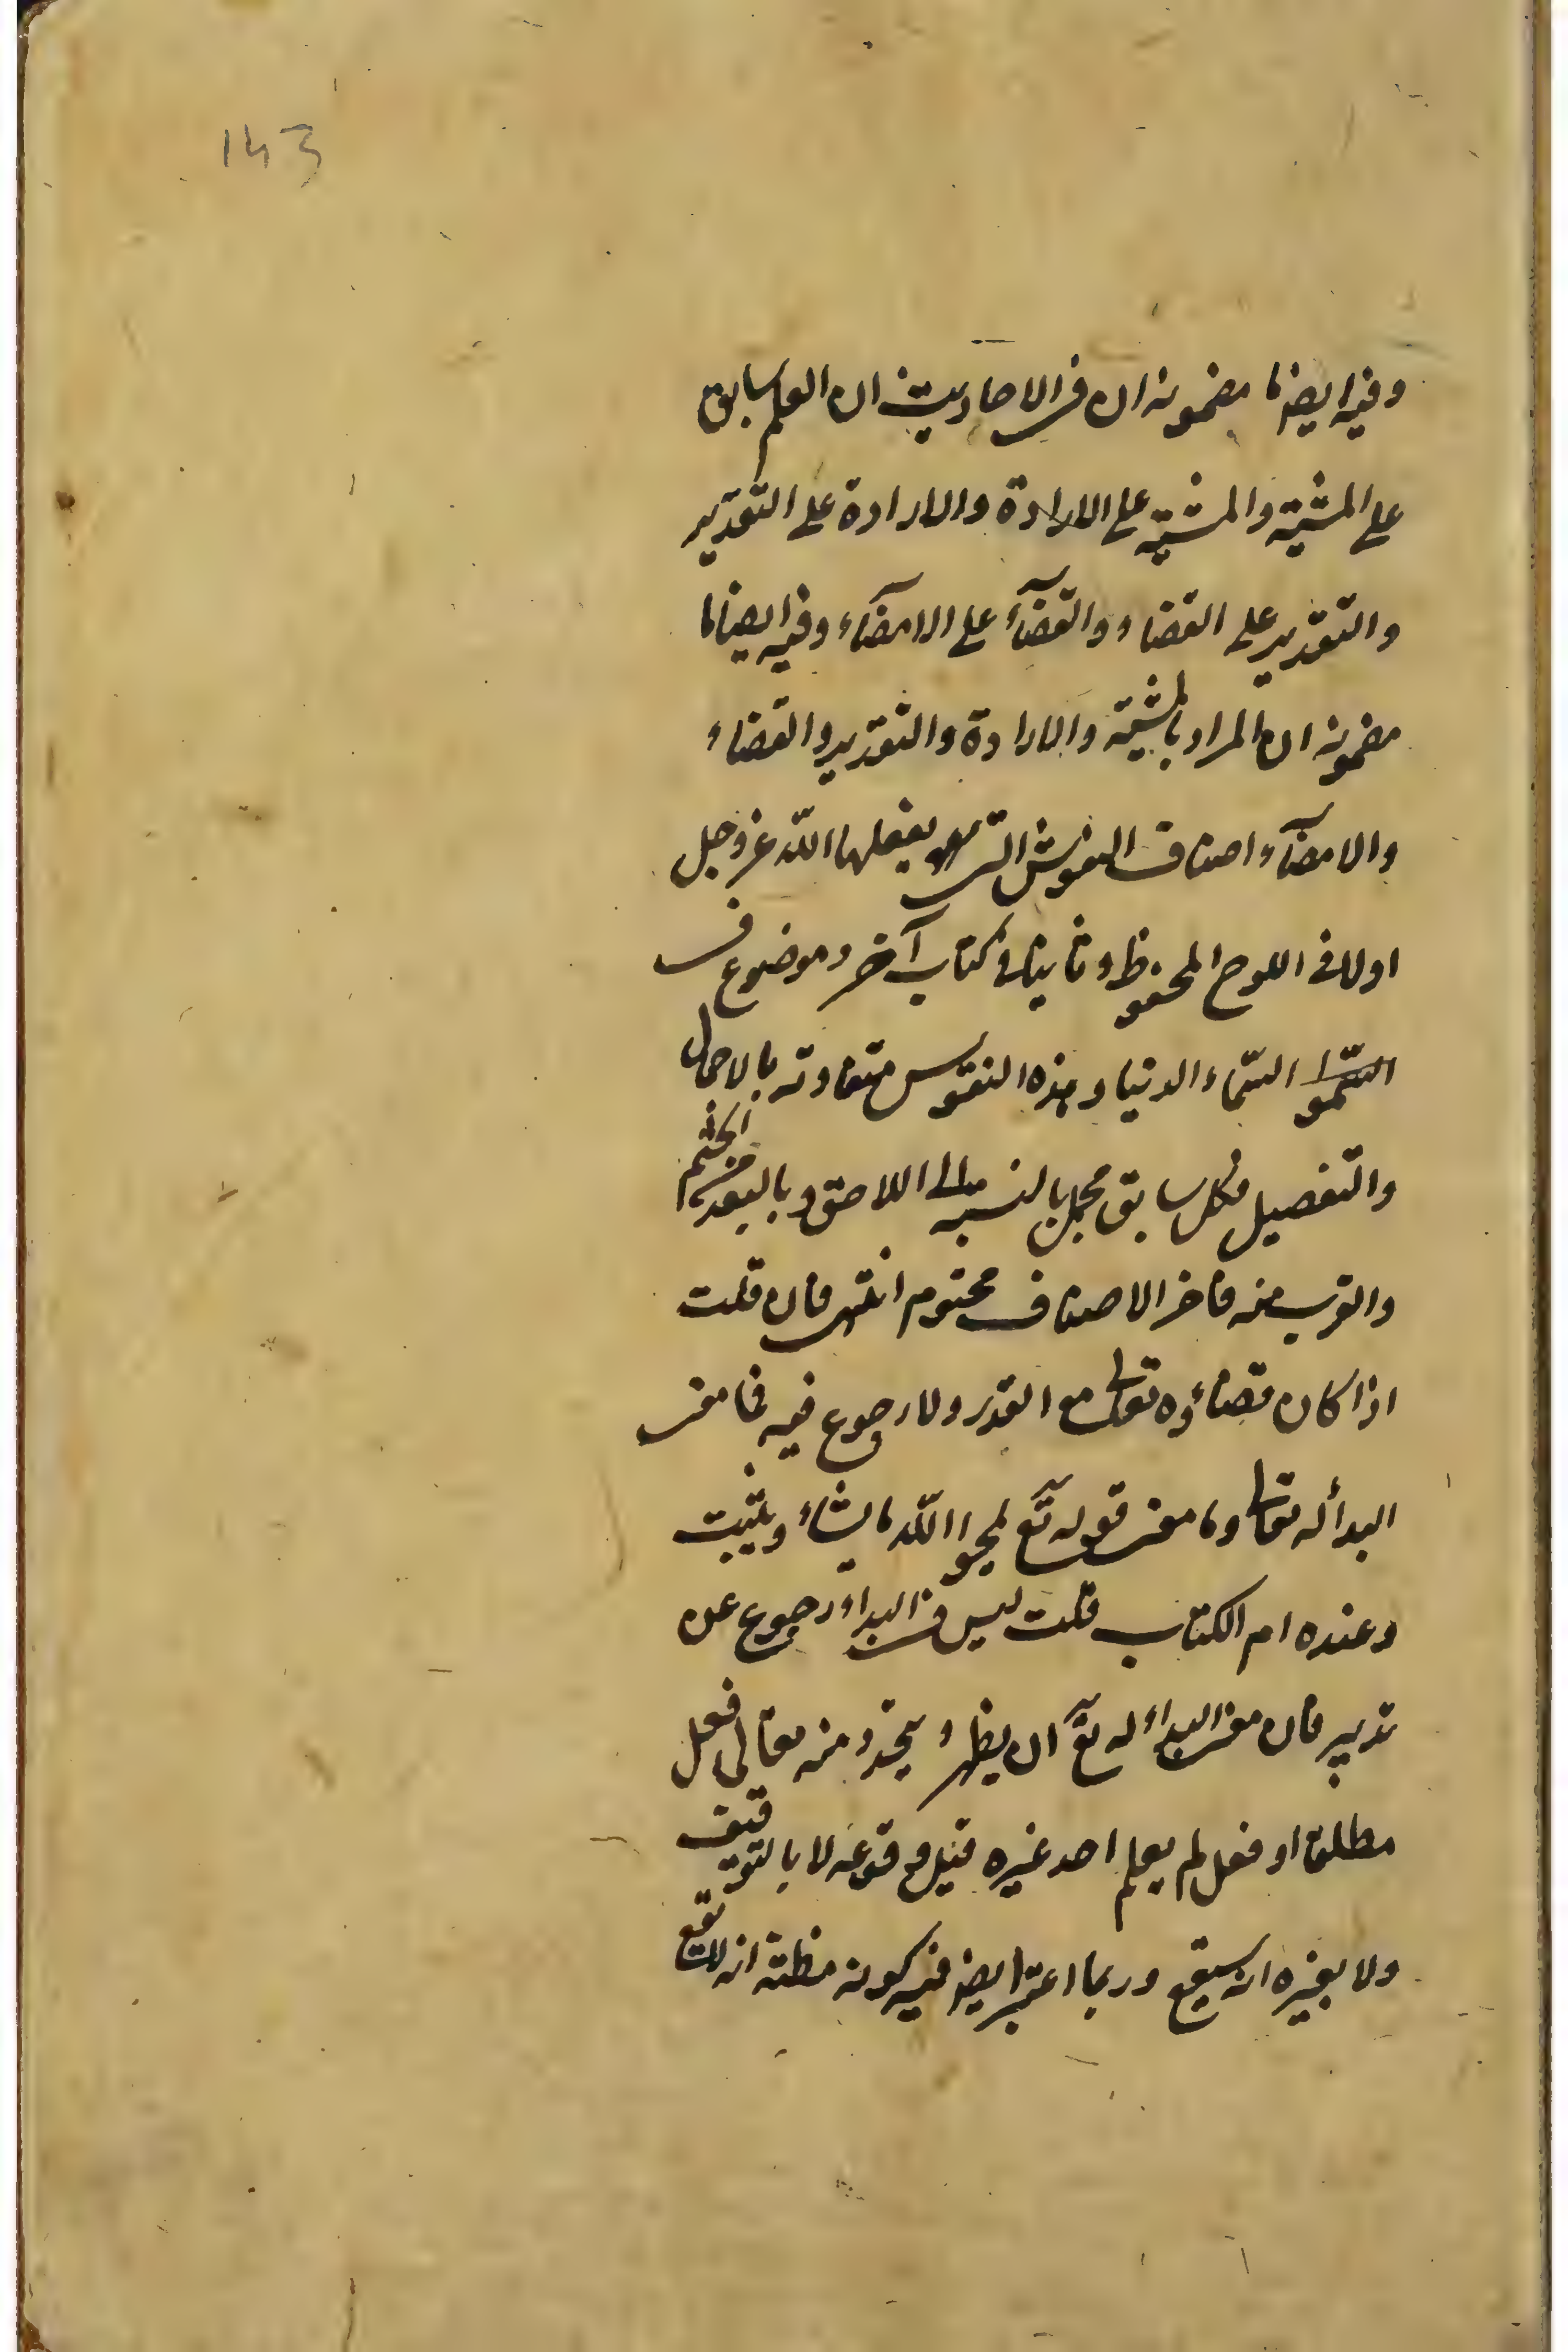 143
وفيه ايضا ما مضمونه ان في الاحاديث ان العلم سابق
على المشية والمشية على الارادة والارادة على التقدير
والتقدير على القضاء والقضآء على الامضآء وفيه ايضا ما
مضمونه ان المراد بالمشية والارادة والتقدير والقضاء
والامضآء اصناف النقوش التى يفعلها الله عز وجل
اولا فى اللوح المحفوظ وثانيا فى كتاب آخر موضوع فى
السّموا السّماء الدنيا وهذه النقوس متفاوته بالاجمال
والتفصيل فكل سابق مجمل بالنسبة الى اللاحق وبالبعد من الحتم
والقرب منه فاخر الاصناف محتوم انتهى فان قلت
اذا كان قضاؤه تعالى مع القدر ولا رجوع فيه فما معنى
البدأ له تعالى وما معنى قوله تعٓ يمحوا الله ما يشاء ويثبت
وعنده ام الكتاب قلت ليس فى البداء رجوع عن
تدبير فان معنى البداء له تعٓ ان يظهر ويتجدد منه تعالى فعل
مطلقا او فعل لم يعلم احد غيره قبل وقوعه لا بالتوقيف
ولا بغيره انه سيقع وربما اعتبر ايضا فيه كونه مظنة انه لا يقع